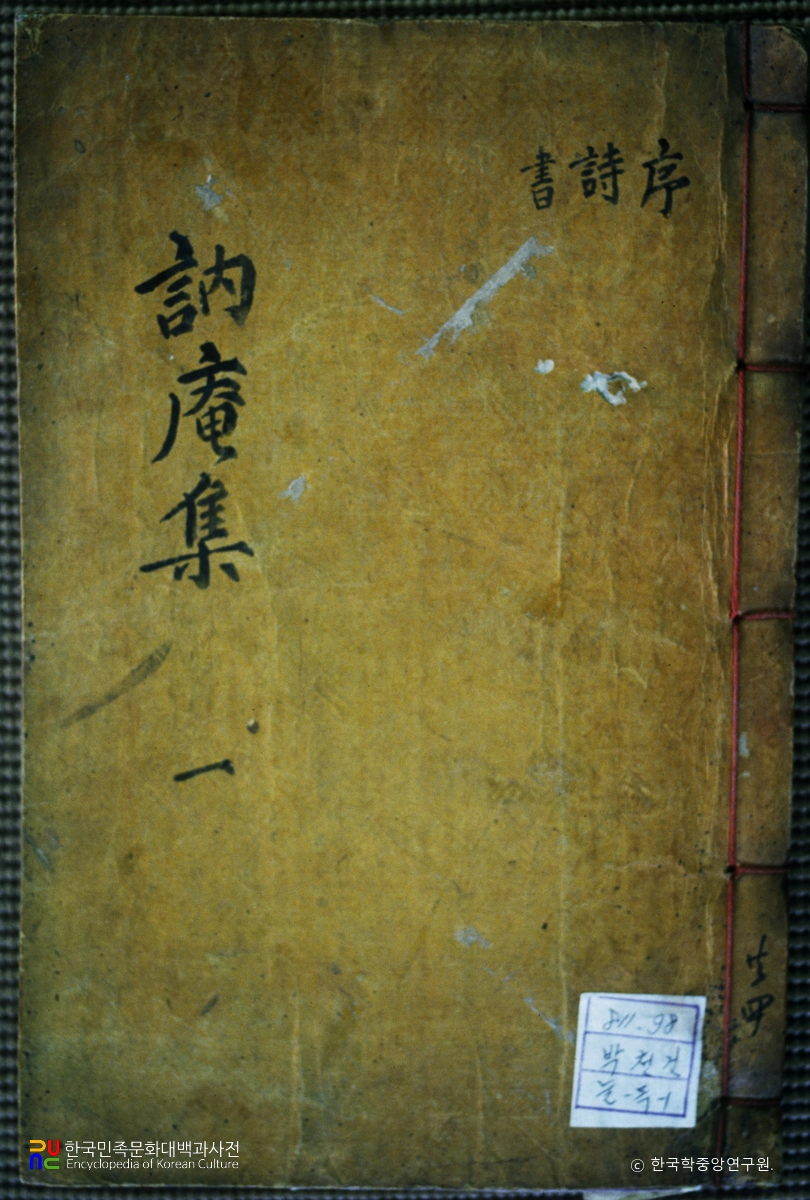 序
詩
書
訥庵集 一
共四
811.98
박천
한국민족문화대백과사전
Encyclopedia of Korean Culture
ⓒ 한국학중앙연구원.